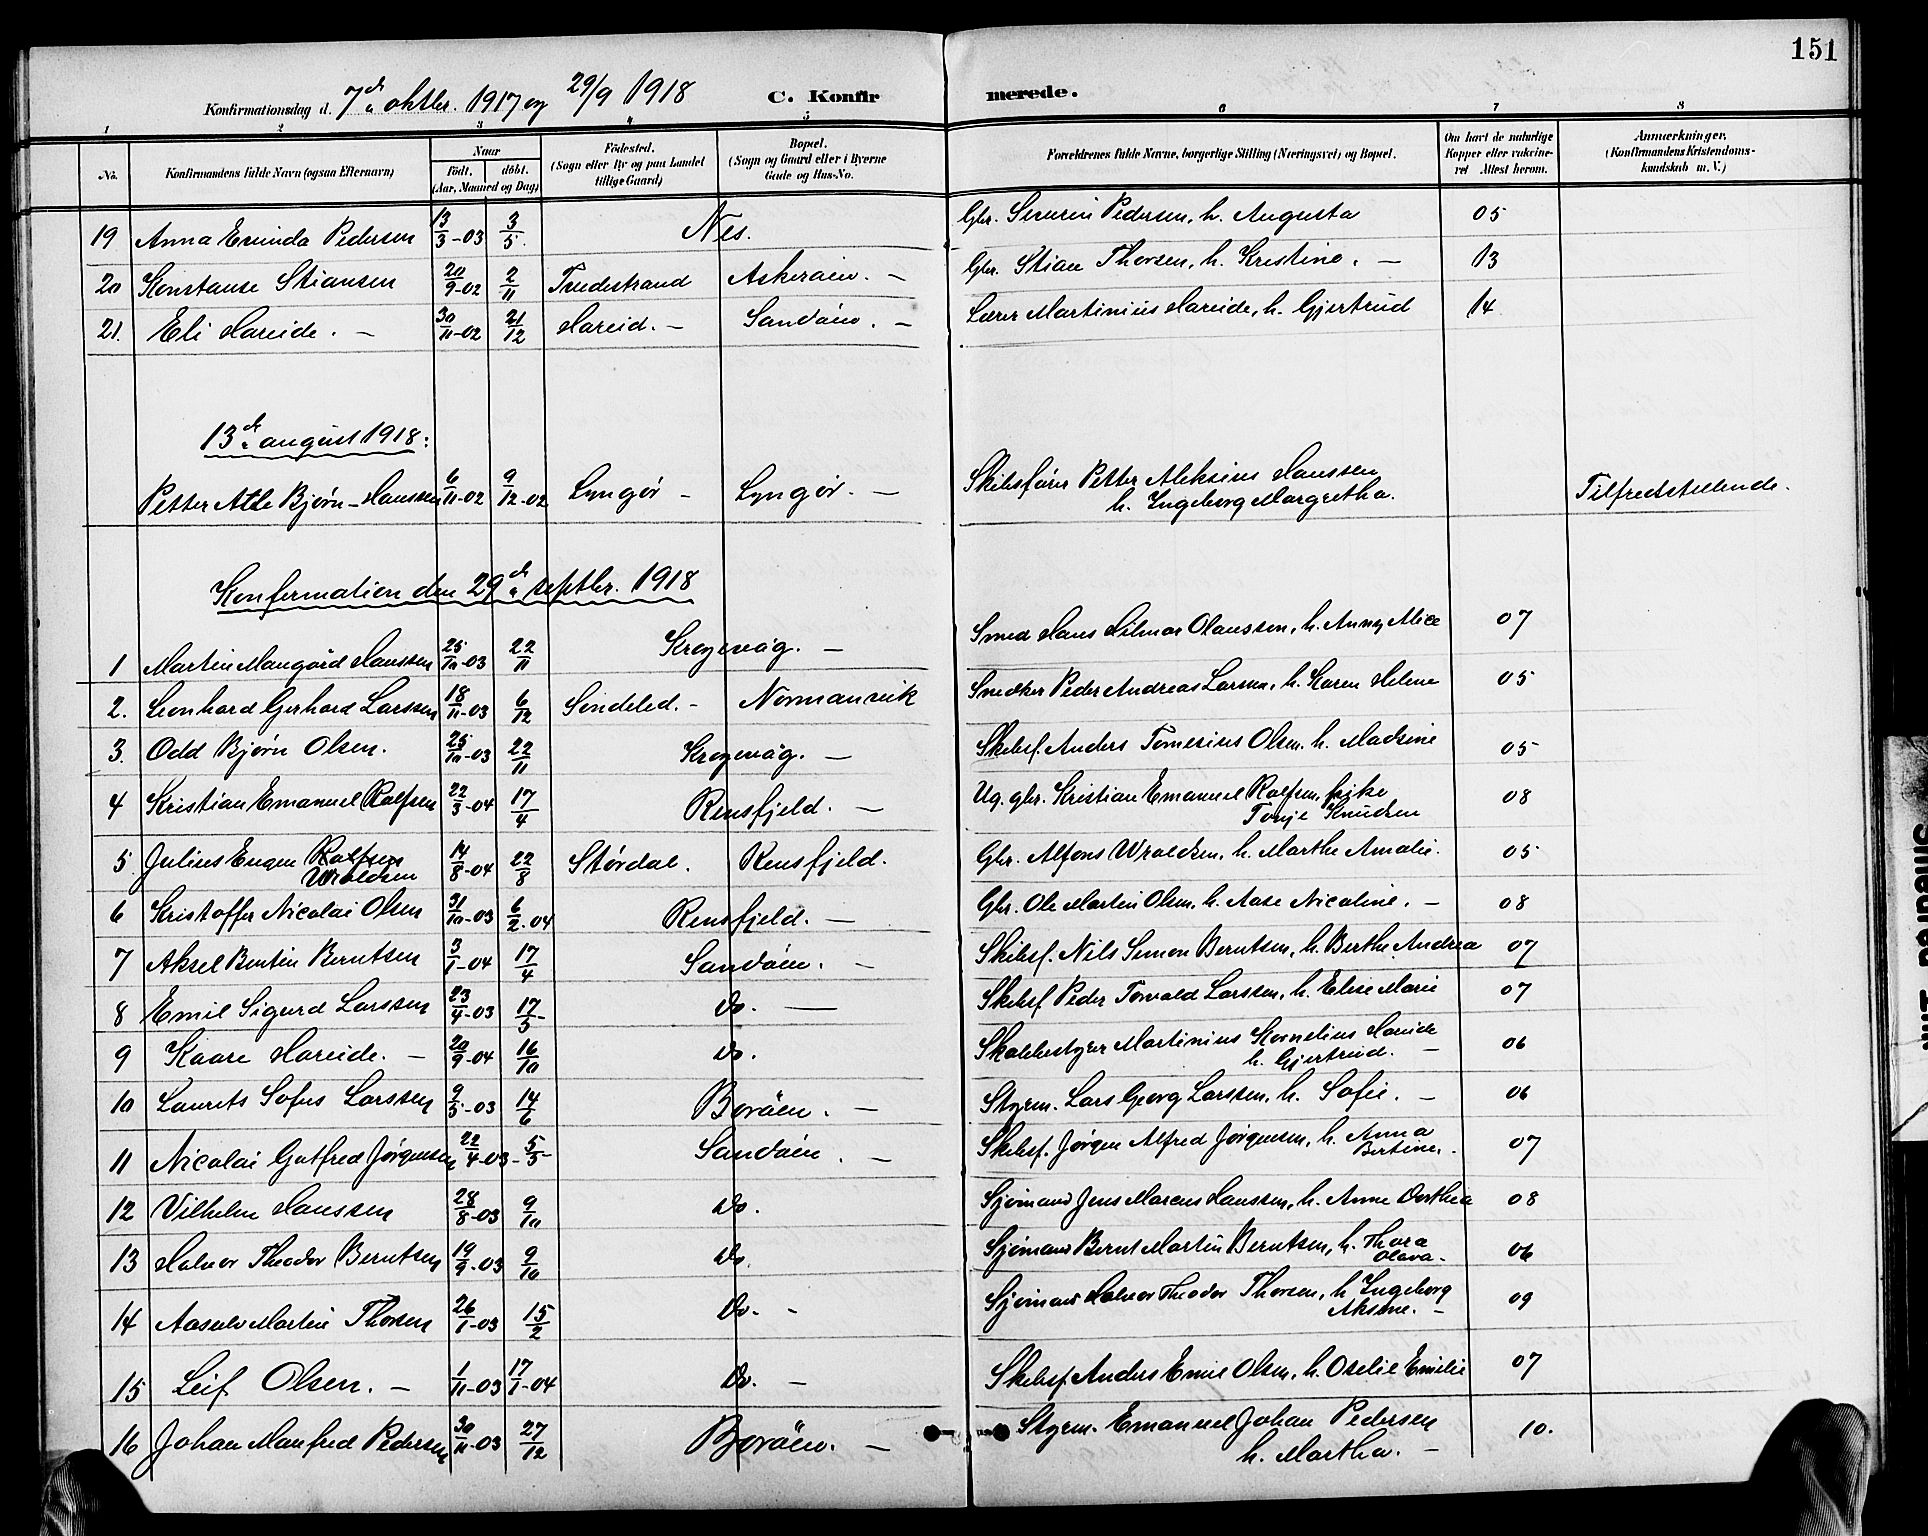 151
Konfirmationsdag d. 7de oktbr. 1917 og 29/9 1918 C. Konfirmerede.
1 2 3 4 5 6 7 8
No. Konfirmandens fulde Navn (ogsaa Efternavn) Naar født, døbt. (Aar, Maaned og Dag) Fødested. (Sogn eller By og paa Landet tillige Gaard) Bopæl. (Sogn og Gaard eller i Byerne Gade og Hus-No. Forældrenes fulde Navne, borgerlige Stilling (Næringsvei) og Bopæl. Om havt de naturlige Kopper eller vakcineret Attest herom. Anmærkninger. (Konfirmandens Kristendomskundskab m. V.)
19 Anna Erinda Pedersen 13/3-03 3/5. Nes. Gbr. Severin Pedersen, h. Augusta 05
20 Konstanse Stiansen 20/9-02 2/11 Tvedestrand Askerøien. – Gbr. Stian Thorsen, h. Kristine. – 13
21. Eli Hareide. – 30/11-02 21/12 Hareid. – Sandøien. – Lærer Martinius Hareide, h. Gjertrud 14
13de august 1918:
Petter Atle Bjørn-Hanssen 6/11-02 9/12-02 Lyngør – Lyngør. – Skibsfører Petter Aleksius Hanssen
h. Ingeborg Margretha. Tilfredstillende.
Konfermation den 29de septbr. 1918
1 Martin Mangård Hanssen 25/10-03 22/11 Krogevåg. – Smed Hans Hilmar Olanssen, h. Anny Alice 07
2. Leonhard Gerhard Larssen 18/11-03 6/12 Søndeled. – Normanvik Snedker Peder Andreas Larsen, h. Karen Helene 05
3. Odd Bjørn Olsen. 25/10-03 22/11 Krogevåg. – Skibsf. Anders Tomesius Olsen, h. Madsine 05
4 Kristian Emanuel Rolfsen 22/3-04 17/4 Rensfjeld. – Ug. gbr. Kristian Emanuel Rolfsen, pike
Tonje Knudsen 08
5. Julius Eugen Rolfsen
Wroldsen 14/8-04 22/8 Størdal. Rensfjeld. Gbr. Alfons Wroldsen, h. Marthe Amalie. 05
6 Kristoffer Nicolai Olsen 31/10-03 6/2-04 Rensfjeld. – Gbr. Ole Martin Olsen, h. Aase Nicoline. – 08
7 Aksel Bentin Berntsen 3/1-04 17/4 Sandøien. – Skibsf. Nils Simon Berntsen, h. Berthe Andrea 07
8 Emil Sigurd Larssen 23/4-03 17/5- do. – Skibsf. Peder Torvald Larssen, h. Elise Marie 07
9 Kaare Hareide. – 20/9-04 16/10 do. Skolebestyrer Martinius Kornelius Hareide
h. Gjertrud. – 06
10 Laurits Sofus Larssen 9/5-03 14/6 Borøen. – Styrm. Lars Georg Larssen, h. Sofie. – 06
11 Nicolai Gotfred Jørgensen 22/4-03 5/5- Sandøien. – Skibsf. Jørgen Alfred Jørgensen, h. Anna
Bertine. 07
12 Vilhelm Hanssen 28/8-03 9/10 do. Sjømand Jens Marcus Hanssen, h. Anne Dorthea 08
13 Halvor Theodor Berntsen 19/9-03 9/10 do. Sjømand Bernt Martin Berntsen, h. Thora
Olava. 06
14 Aasulv Martin Thorsen 26/1-03 15/2 do. – Sjømand Halvor Theodor Thorsen, h. Ingeborg
Aksine. – 09
15 Leif Olsen. – 1/11-03 17/1-04 do. – Skibsf. Anders Emil Olsen, h. Oselie Emelie 07
16 Johan Manfred Pedersen 30/11-03 27/12 Borøen. – Styrm. Emanuel Johan Pedersen
h. Martha. – 10.